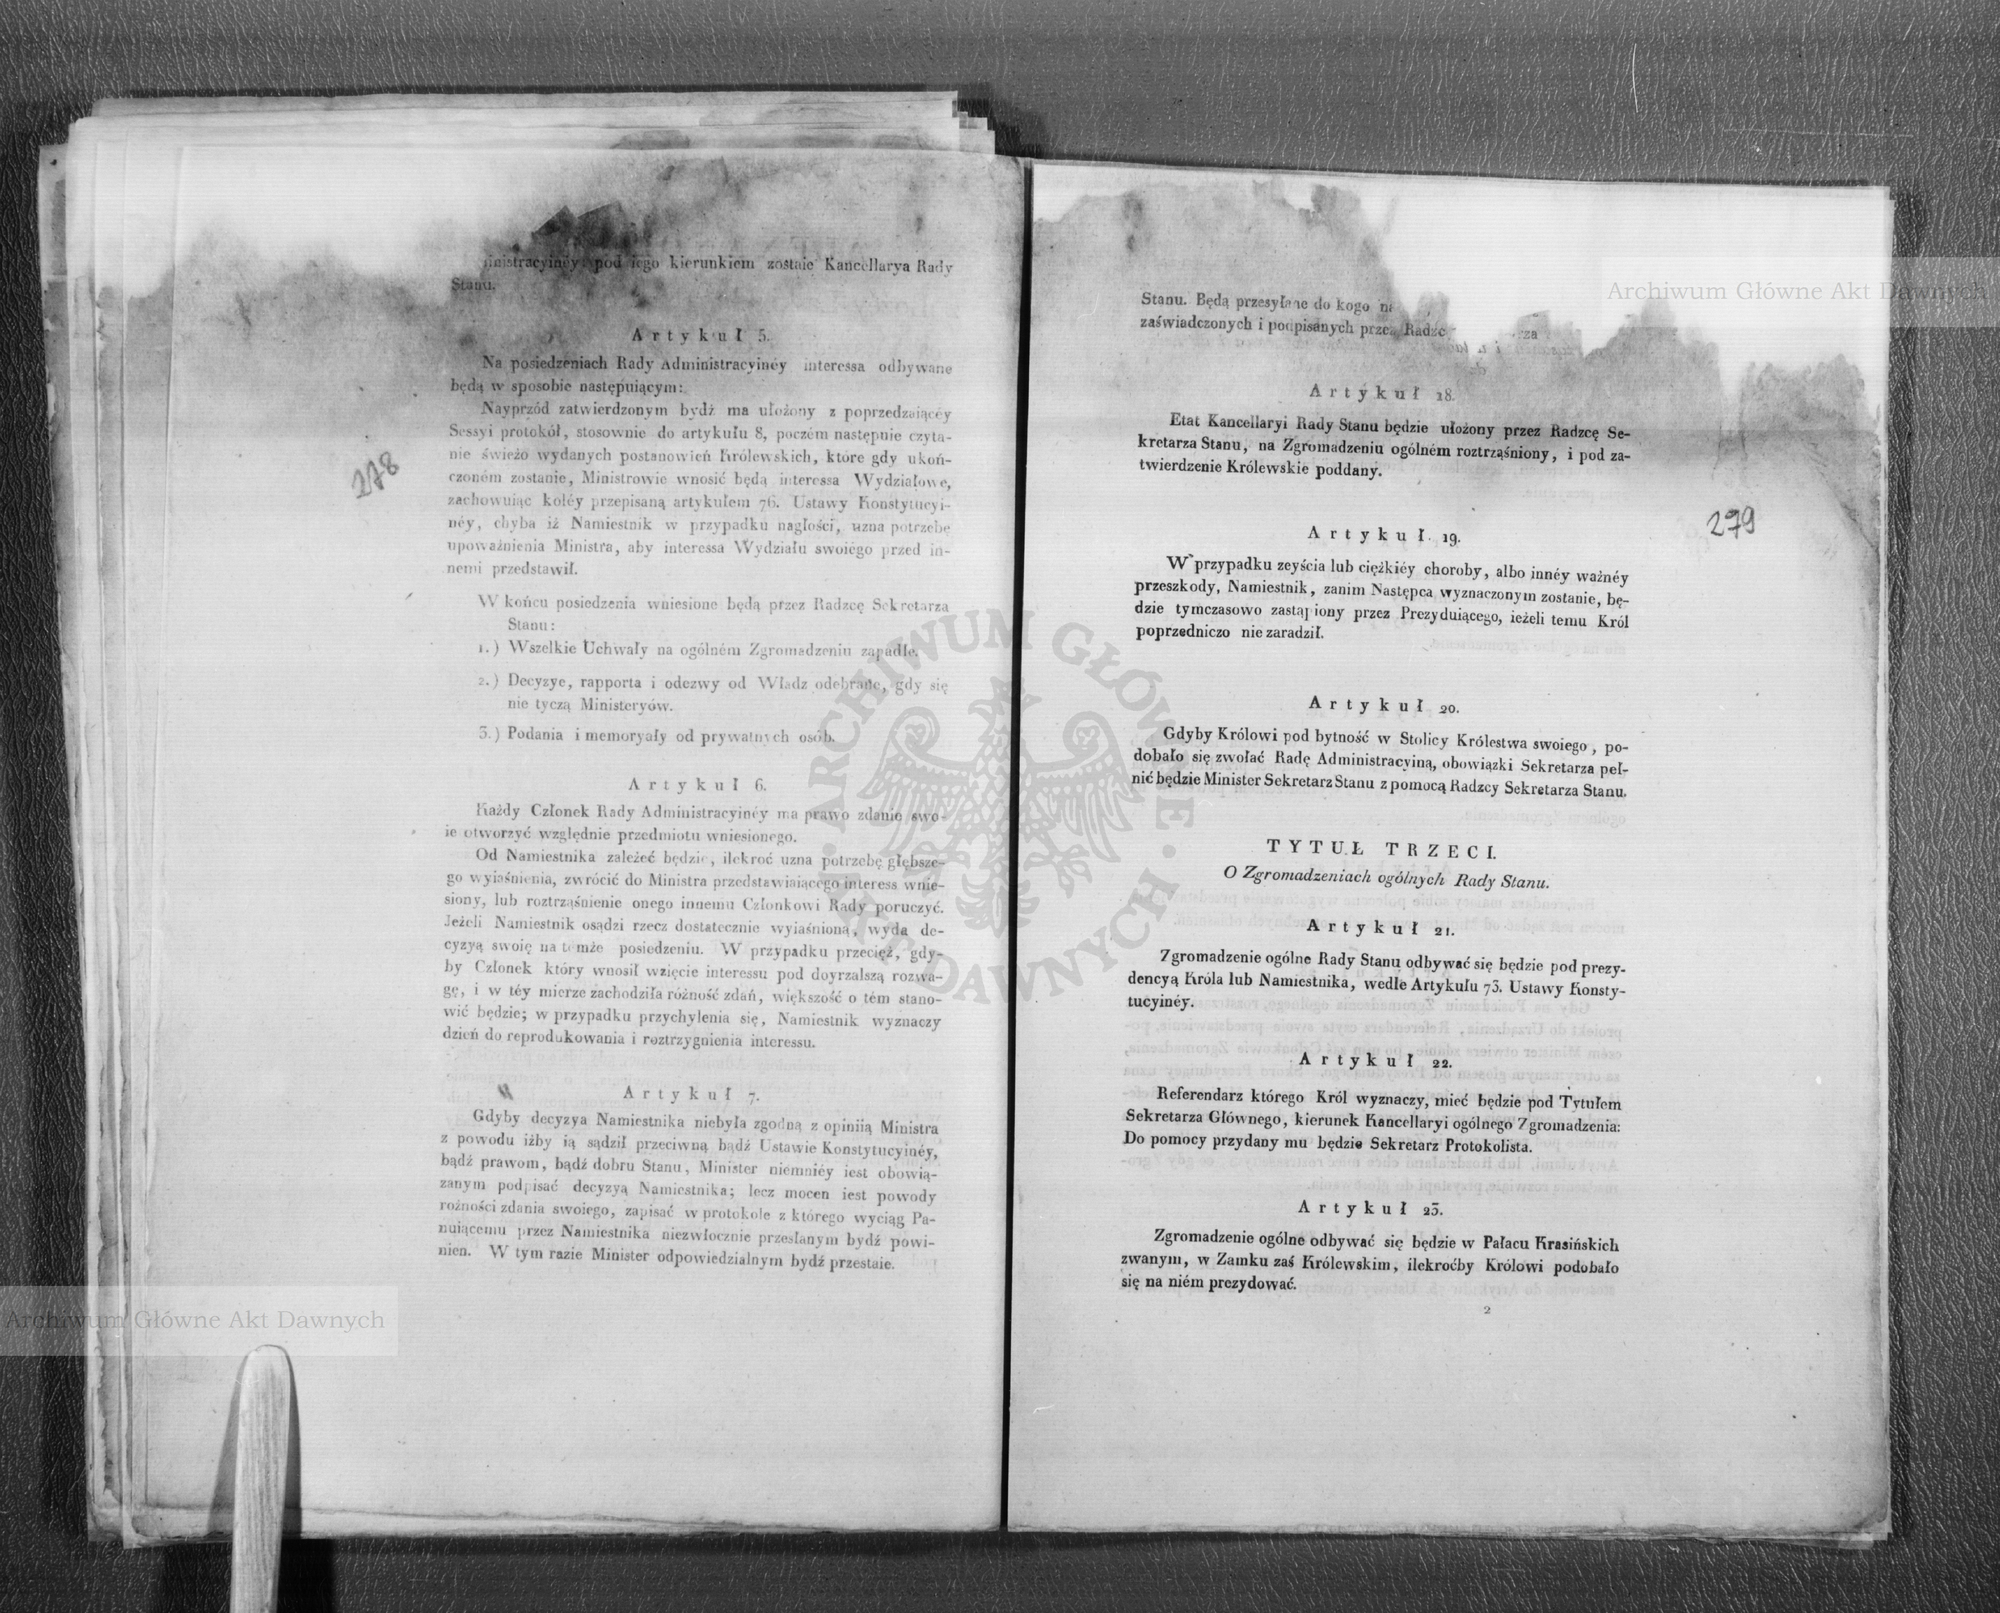 pod iego kierunkiem zostaie Kancellarya Rady
Stanu.
Artykuł 5.
Na posiedzeniach Rady Administracyinéy interessa odbywane
będą w sposobie następuiącym:
Nayprzód zatwierdzonym bydź ma ułożony z poprzedzaiącéy
Sessyi protokół, stosownie do artykułu 8, poczém następnie czyta-
nie świeżo wydanych postanowień Królewskich, które gdy ukoń-
czoném zostanie, Ministrowie wnosić będą interessa Wydziałowe,
zachowuiąc koléy przepisaną artykułem 76. Ustawy Konstytucyi-
néy, chyba iż Namiestnik w przypadku nagłości, uzna potrzebę
upoważnienia Ministra, aby interessa Wydziału swoiégo przed in-
nemi przedstawił.
W końcu posiedzenia wniesione będą przez Radzcę Sekretarza
Stanu:
1.) Wszelkie Uchwały na ogólném Zgromadzeniu zapadłe.
2.) Decyzye, rapporta i odezwy od Władz odebrane, gdy się
nie tyczą Ministeryów.
3.) Podania i memoryały od prywatnych osób.
Artykuł 6.
Każdy Członek Rady Administracyinéy ma prawo zdanie swo-
ie otworzyć względnie przedmiotu wniesionego.
Od Namiestnika zależeć będzie, ilekroć uzna potrzebę głębsze-
go wyiaśnienia, zwrócić do Ministra przedstawiaiącego interess wnie-
siony, lub roztrząśnienie onego innemu Członkowi Rady poruczyć.
Jeżeli Namiestnik osądzi rzecz dostatecznie wyiaśnioną, wyda de-
cyzyą swoię na temże posiedzeniu. W przypadku przecięż, gdy-
by Członek który wnosił wzięcie interessu pod doyrzalszą rozwa-
gę, i w téy mierze zachodziła różność zdań, większość o tém stano-
wić będzie; w przypadku przychylenia się, Namiestnik wyznaczy
dzień do reprodukowania i roztrzygnienia interessu.
Artykuł 7.
Gdyby decyzya Namiestnika niebyła zgodną z opiniią Ministra
z powodu iżby ią sądził przeciwną bądź Ustawie Konstytucyinéy,
bądź prawom, bądź dobru Stanu, Minister niemniéy iest obowią-
zanym podpisać decyzyą Namiestnika; lecz mocen iest powody
rożności zdania swoiego, zapisać w protokole z którego wyciąg Pa-
nuiącemu przez Namiestnika niezwłocznie przesłanym bydź powi-
nien. W tym razie Minister odpowiedzialnym bydź przestaie.
278
Stanu. Będą przesyłane do kogo
zaświadczonych i podpisanych przez
Artykuł 18.
Etat Kancellaryi Rady Stanu będzie ułożony przez Radzcę Se-
kretarza Stanu, na Zgromadzeniu ogólném roztrząśniony, i pod za-
twierdzenie Królewskie poddany.
279
Artykuł 19.
W przypadku zeyścia lub ciężkiéy choroby, albo innéy ważnéy
przeszkody, Namiestnik, zanim Następca wyznaczonym zostanie, bę-
dzie tymczasowo zastąpiony przez Prezyduiącego, ieżeli temu Król
poprzedniczo nie zaradził.
Artykuł 20.
Gdyby Królowi pod bytność w Stolicy Królestwa swoiego, po-
dobało się zwołać Radę Administracyiną, obowiązki Sekretarza peł-
nić będzie Minister Sekretarz Stanu z pomocą Radzcy Sekretarza Stanu.
TYTUŁ TRZECI.
O Zgromadzeniach ogólnych Rady Stanu.
Artykuł 21.
Zgromadzenie ogólne Rady Stanu odbywać się będzie pod prezy-
dencyą Króla lub Namiestnika, wedle Artykułu 73. Ustawy Konsty-
tucyinéy.
Artykuł 22.
Referendarz którego Król wyznaczy, mieć będzie pod Tytułem
Sekretarza Głównego, kierunek Kancellaryi ogólnego Zgromadzenia:
Do pomocy przydany mu będzie Sekretarz Protokolista.
Artykuł 23.
Zgromadzenie ogólne odbywać się będzie w Pałacu Krasińskich
zwanym, w Zamku zaś Królewskim, ilekroćby Królowi podobało
się na niém prezydować.
2
Archiwum Główne Akt Dawnych
Archiwum Główne Akt Dawnych
ARCHIWUM GŁÓWNE AKT DAWNYCH